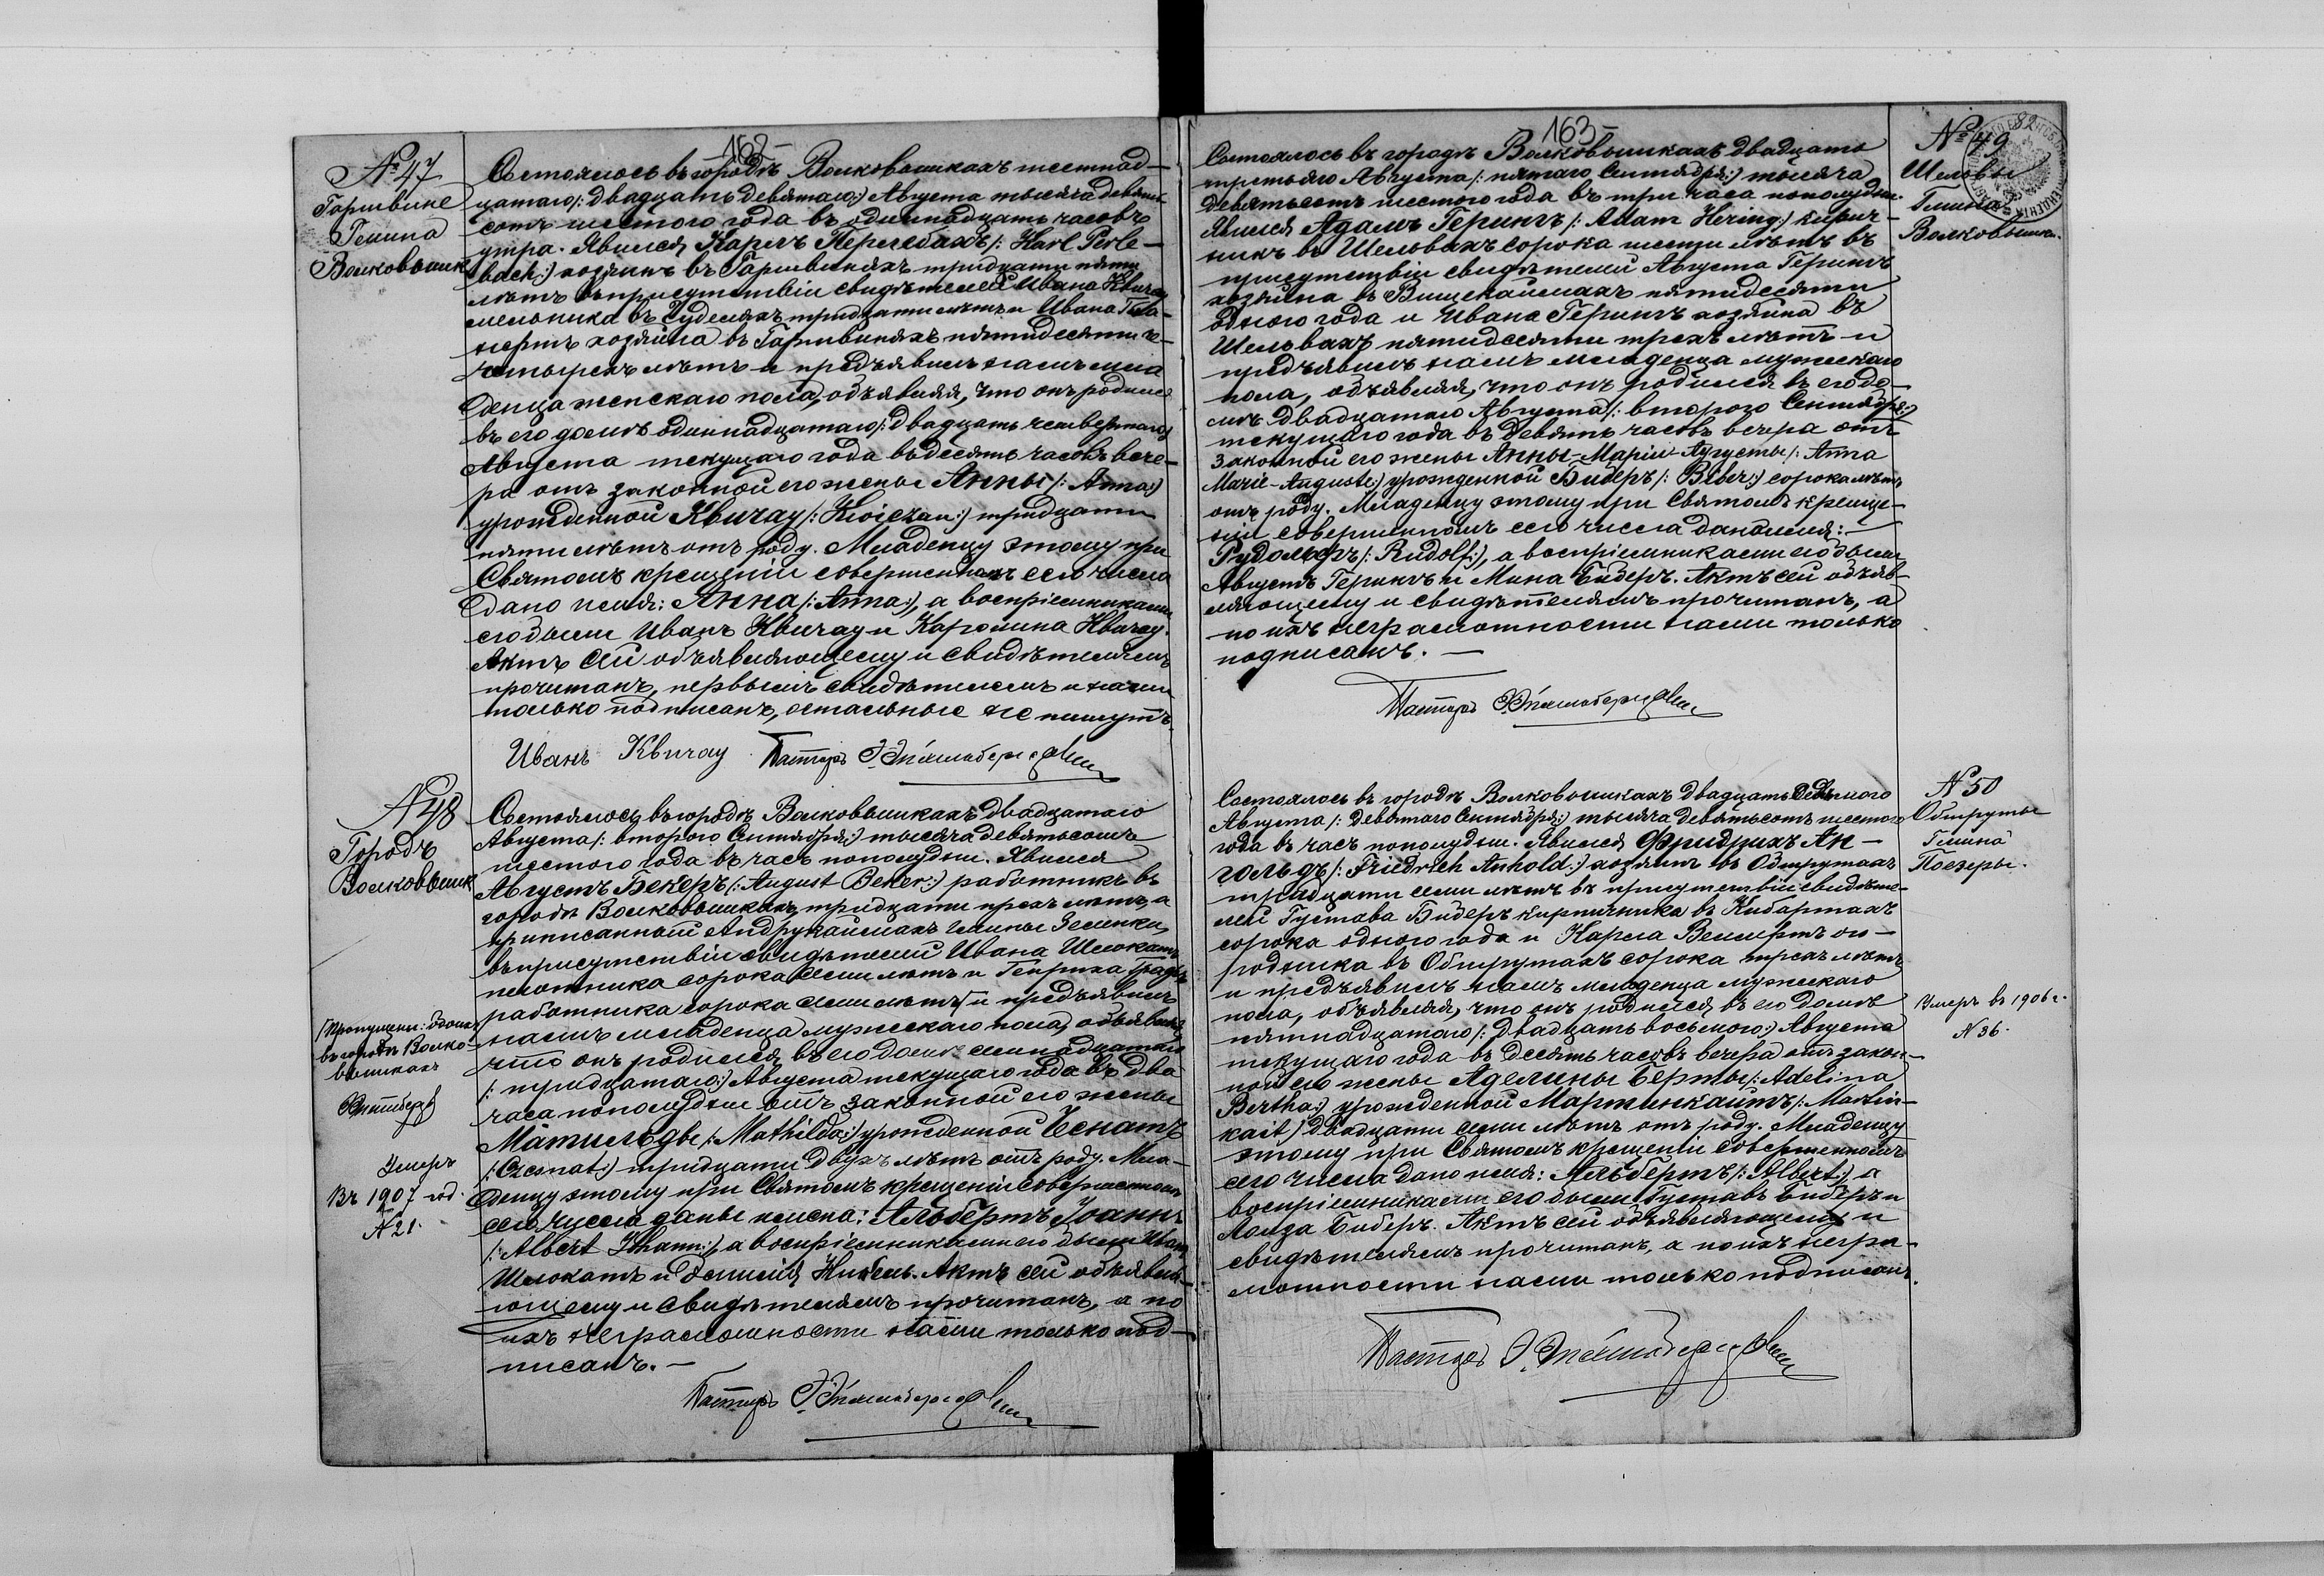 162-
№ 47
Гаршвине
Гмина
Волковышки
Состоялось въ городѣ Волковышкахъ шестнад-
цатаго /: двадцать девятаго :/ Августа тысяча девять-
сотъ шестого года въ одиннадцать часовъ
утра. Явился Карлъ Перлебахъ /: Karl Perle-
bach :/ хозяинъ въ Гаршвиняхъ тридцати пяти
лѣтъ въ присутствіи свидѣтелей Ивана Квичау
мельника въ тридцати лѣтъ и Ивана
хозяина въ Гаршвиняхъ пятидесяти че-
тырехъ лѣтъ и предъявилъ намъ мла
денца женскаго пола, объявляя, что онъ родился
въ его домѣ одиннадцатаго /: двадцать четвертаго :/
Августа текущаго года въ десять часовъ вече-
ра отъ законной его жены Анны /: Anna :/
урожденной Квичау /: Kwiczau :/ тридцати
пяти лѣтъ отъ роду. Младенцу этому при
Святомъ крещеніи совершенномъ сего числа
дано имя: Анна /: Anna :/, а воспріемниками
его были Иванъ Квичау и Каролина Квичау.
Актъ сей объявляющему и свидѣтелямъ
прочитанъ, первымъ свидѣтелемъ и нами
только подписанъ, остальные не пишутъ.
Иванъ Квичау Пасторъ
№ 48
Городъ
Волковышки
Состоялось въ городѣ Волковышкахъ двадцатаго
Августа /: второго Сентября :/ тысяча девятьсотъ
шестого года въ часъ пополудни. Явился
Августъ Бекеръ /: August Beker :/ работникъ въ
городѣ Волковышкахъ, тридцати трехъ лѣтъ, а
приписанный Андрукаймахъ гмины Зеленки,
въ присутствіи свидѣтелей Ивана Шлокатъ
плотника сорока семи лѣтъ и Генриха
работника сорока семи лѣтъ и предъявилъ
намъ младенца мужескаго пола, объявляя,
что онъ родился въ его домѣ семнадцатаго
/: тридцатаго :/ Августа текущаго года въ два
часа пополудни отъ законной его жены
Матильды /: Mathilda :/ урожденной Чеснатъ
/: Czesnat :/ тридцати двухъ лѣтъ отъ роду. Мла-
денцу этому при Святомъ крещеніи совершенномъ
сего числа даны имена: Альбертъ Іоаннъ
/: Albert Johann :/, а воспріемниками его были Иванъ
Шлокатъ и Эмилія Актъ сей объявля-
ющему и свидѣтелямъ прочитанъ, а по
ихъ неграмотности нами только под-
писанъ. -
Пасторъ
въ городѣ Волко-
вышкахъ
Умеръ
въ 1907 год.
№ 21.
163-
№ 49
Шельвы
Гмина
Волковышки.
Состоялось въ городѣ Волковышкахъ двадцать
третьяго Августа /: пятаго Сентября :/ тысяча
девятьсотъ шестого года въ три часа пополудни.
Явился Адамъ Герингъ /: Adam Hering :/ кирпич-
никъ въ Шельвахъ сорока шести лѣтъ въ
присутствіи свидѣтелей Августа Герингъ
хозяина въ Вищекаймахъ пятидесяти
одного года и Ивана Герингъ хозяина въ
Шельвахъ пятидесяти трехъ лѣтъ и
предъявилъ намъ младенца мужескаго
пола, объявляя, что онъ родился въ его до-
мѣ двадцатаго Августа /: второго Сентября :/
текущаго года въ девять часовъ вечера отъ
законной его жены Анны-Маріи-Августы /: Anna
Marie-Auguste :/ урожденной Биберъ /: Biber :/ сорока лѣтъ
отъ роду. Младенцу этому при Святомъ креще-
ніи совершенномъ сего числа дано имя: -
Рудольфъ /: Rudolf :/, а воспріемниками его были
Августъ Герингъ и Мина Биберъ. Актъ сей объяв-
ляющему и свидѣтелямъ прочитанъ, а
по ихъ неграмотности нами только
подписанъ. -
Пасторъ
№ 50
Обшруты
Гмина
Поезеры.
Состоялось въ городѣ Волковышкахъ двадцать седьмого
Августа /: девятаго Сентября :/ тысяча девятьсотъ шестого
года въ часъ пополудни. Явился Фридрихъ Ан-
гольдъ /: Friedrich Anhold :/ хозяинъ въ Обшрутахъ
тридцати семи лѣтъ въ присутствіи свидѣте-
лей Густава Биберъ кирпичника въ Кибартахъ
сорока одного года и Карла Веллертъ ого-
родника въ Обшрутахъ сорока трехъ лѣтъ
и предъявилъ намъ младенца мужескаго
пола, объявляя, что онъ родился въ его домѣ
пятнадцатаго /: двадцать восьмого :/ Августа
текущаго года въ десять часовъ вечера отъ закон-
ной его жены Аделины Берты /: Adelina
Bertha :/ урожденной Мартинкайтъ /: Martin-
kait :/ двадцати семи лѣтъ отъ роду. Младенцу
этому при Святомъ крещеніи совершенномъ
сего числа дано имя: Альбертъ /: Albert :/, а
воспріемниками его были Густавъ Биберъ и
Луиза Биберъ. Актъ сей объявляющему и
свидѣтелямъ прочитанъ, а по ихъ негра-
мотности нами только подписанъ.
Пасторъ
Умеръ въ 1906 г.
№ 36.